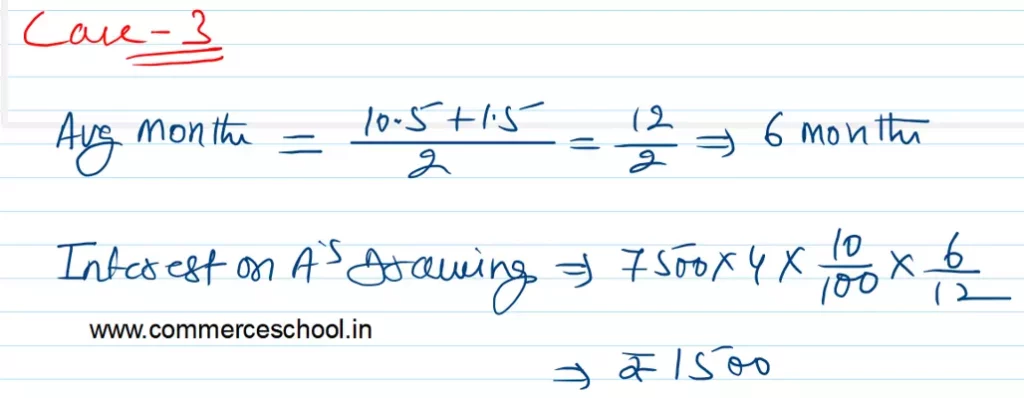 Case - 3
Avg months = 10.5 + 1.5 / 2 = 12 / 2 ⇒ 6 months
Interest on A's Drawing ⇒ 7500 × 4 × 10 / 100 × 6 / 12
www.commerceschool.in
⇒ ₹ 1500